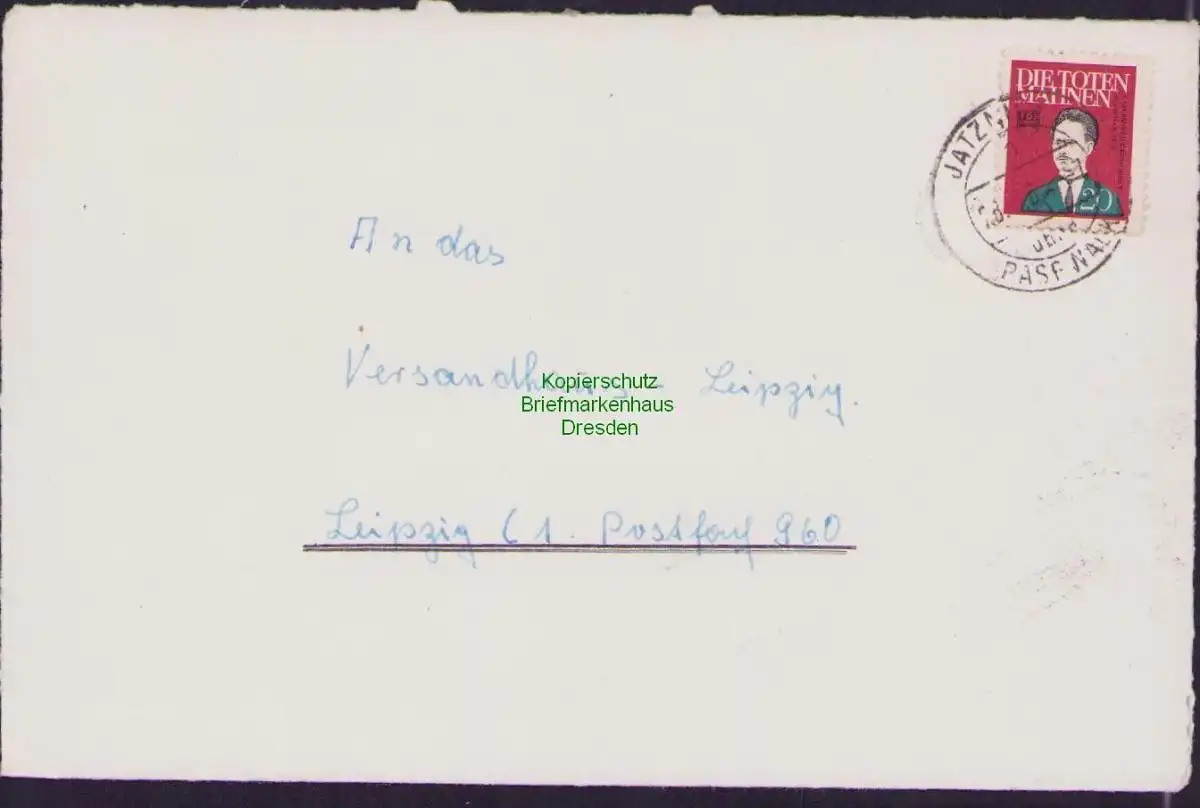 DIE TOTEN
MAHNEN
20
JATZN
PASEWAL
An das
Versandhaus - Leipzig.
Kopierschutz
Briefmarkenhaus
Dresden
Leipzig C 1. Postfach 960